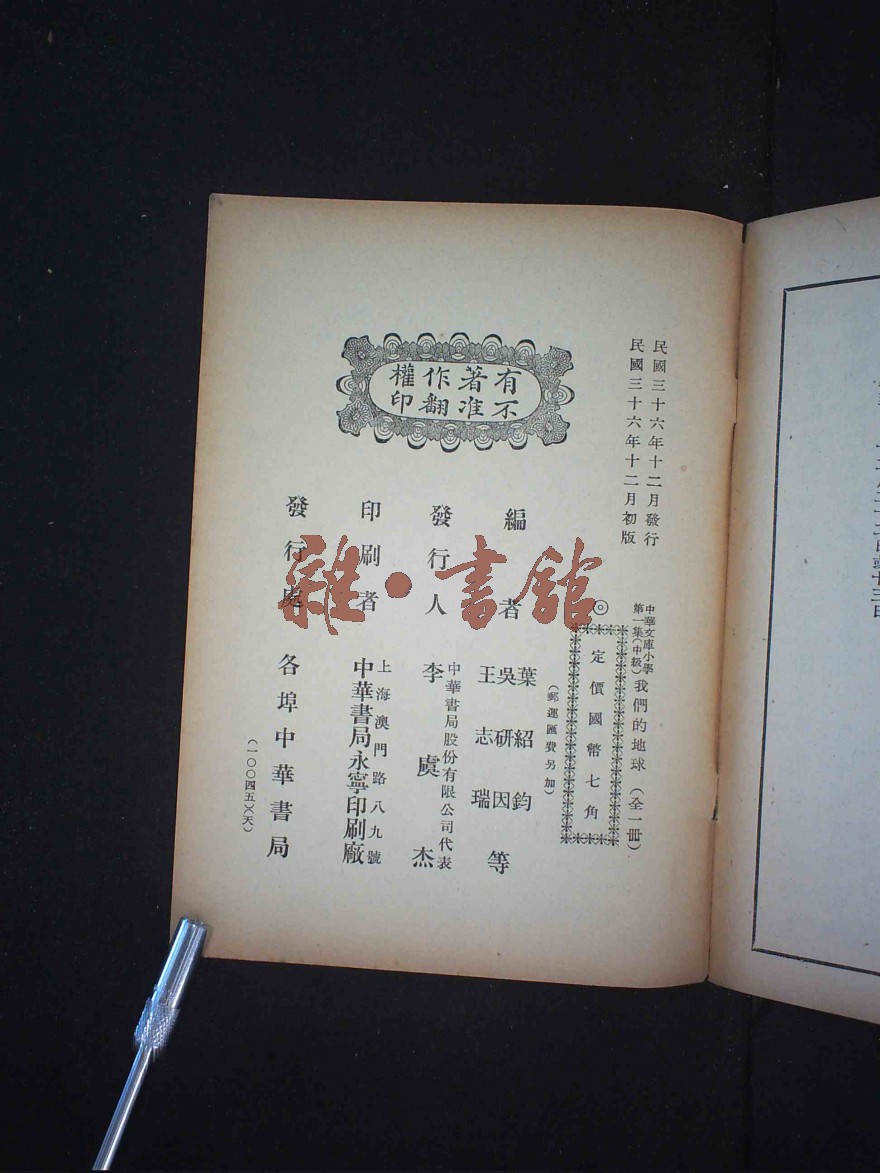 民國三十六年十二月發行
民國三十六年十二月初版
中華文庫小學第一集(中級)
我們的地球(全一冊)
◎定價國幣七角
(郵運匯費另加)
有著作權
不准翻印
編者
葉紹鈞
吳研因
王志瑞
等
發行人
中華書局股份有限公司代表
李虞杰
印刷者
上海澳門路八九號
中華書局永寧印刷廠
發行處
各埠中華書局
(一〇〇四五)(天)
雜·書館